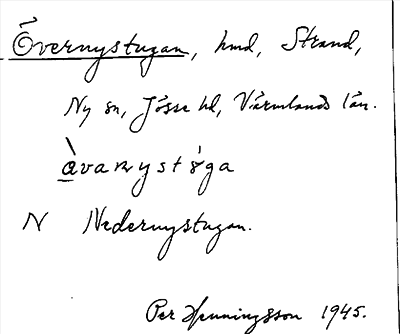 Övernystugan, hmd, Strand,
Ny sn, Jösse hd, Värmlands län.
N Nedernystugan.
Per Henningsson 1945.